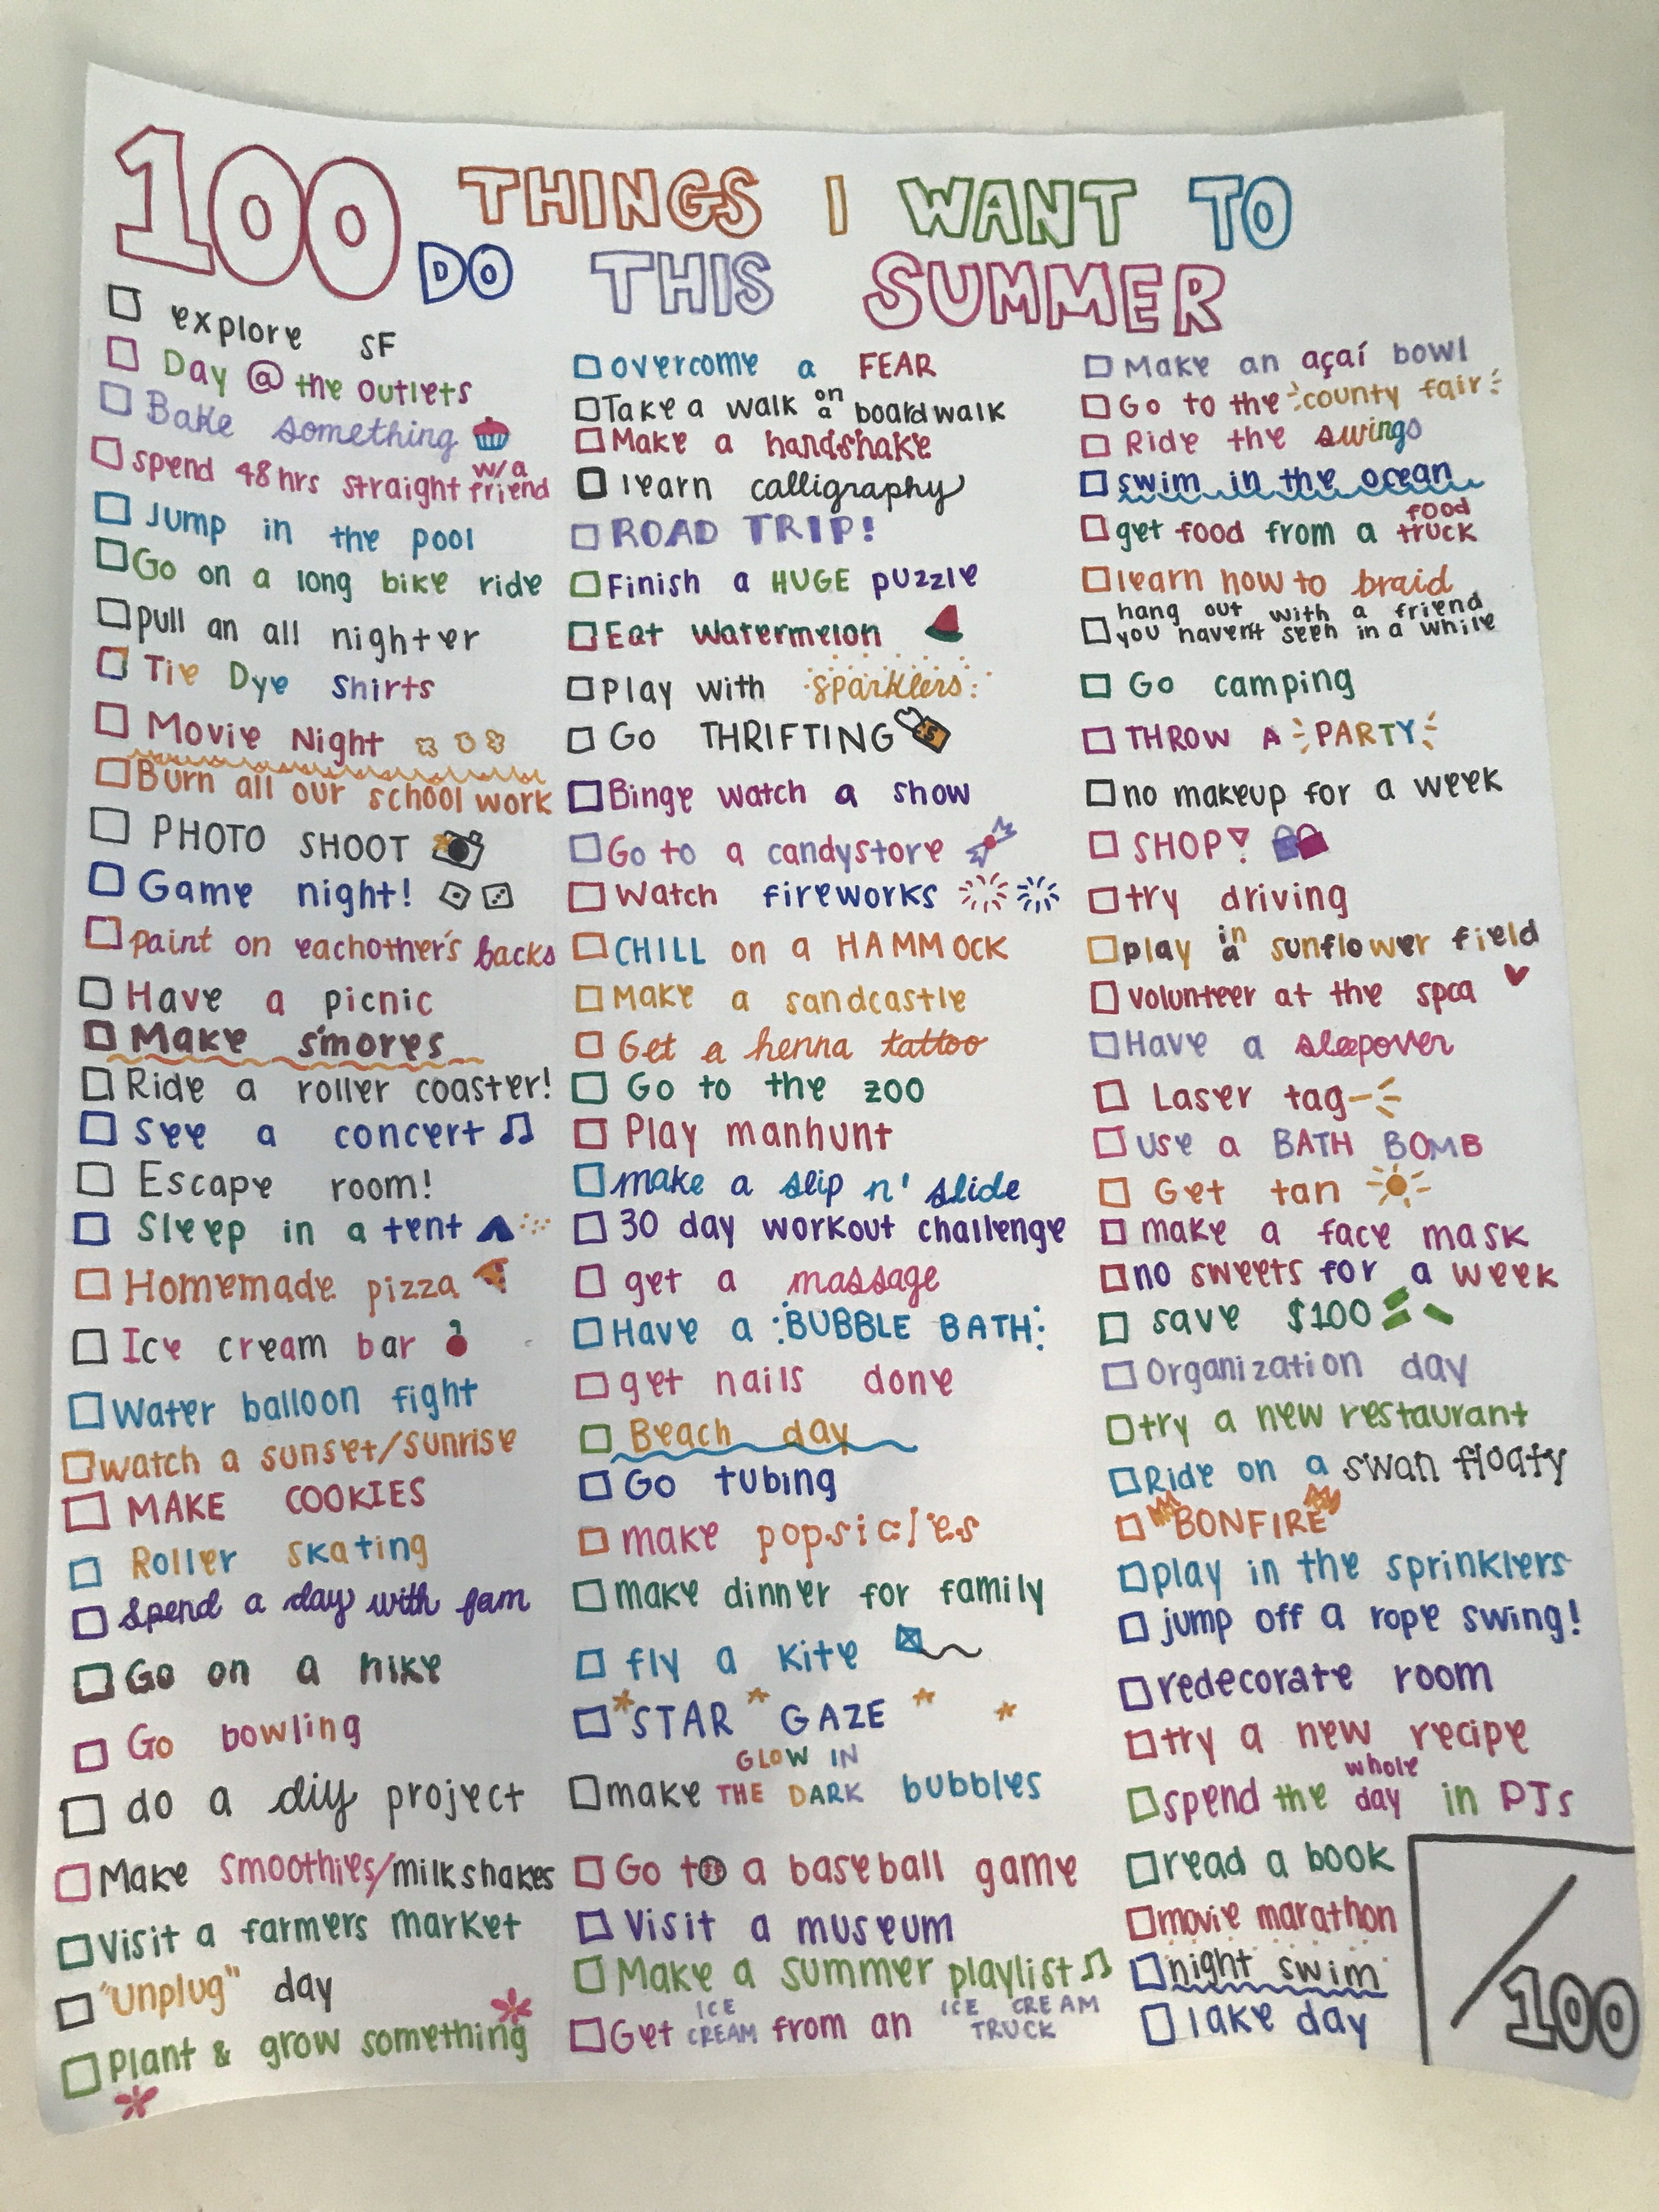 100 THINGS I WANT TO
DO THIS SUMMER
explore SF
Day @ the outlets
Bake something
spend 48 hrs straight w/a friend
Jump in the pool
Go on a long bike ride
pull an all nighter
Tie Dye shirts
Movie Night
Burn all our school work
PHOTO SHOOT
Game night!
paint on eachother's backs
Have a picnic
Make s'mores
Ride a roller coaster!
See a concert
Escape room!
Sleep in a tent
Homemade pizza
Ice cream bar
Water balloon fight
watch a sunset/sunrise
MAKE COOKIES
Roller skating
Spend a day with fam
Go on a hike
Go bowling
do a diy project
Make smoothies/milkshakes
Visit a farmers market
"Unplug" day
Plant & grow something
overcome a FEAR
Take a walk on a boardwalk
Make a handshake
learn calligraphy
ROAD TRIP!
Finish a HUGE puzzle
Eat watermelon
Play with sparklers
Go THRIFTING $5
Binge watch a show
Go to a candystore
Watch fireworks
CHILL on a HAMMOCK
Make a sandcastle
Get a henna tattoo
Go to the zoo
Play manhunt
make a slip n' slide
30 day workout challenge
get a massage
Have a BUBBLE BATH
get nails done
Beach day
Go tubing
make popsicles
make dinner for family
fly a kite
STAR GAZE
make GLOW IN THE DARK bubbles
Go to a baseball game
Visit a museum
Make a summer playlist
Get ICE CREAM from an ICE CREAM TRUCK
Make an açaí bowl
Go to the county fair
Ride the swings
swim in the ocean
get food from a food truck
learn how to braid
hang out with a friend
you haven't seen in a while
Go camping
THROW A PARTY
no makeup for a week
SHOP!
try driving
play in a sunflower field
volunteer at the spca
Have a sleepover
Laser tag
use a BATH BOMB
Get tan
make a face mask
no sweets for a week
save $100
Organization day
try a new restaurant
Ride on a swan floaty
BONFIRE
play in the sprinklers
jump off a rope swing!
redecorate room
try a new recipe
spend the whole day in PJs
read a book
movie marathon
night swim
lake day
/100